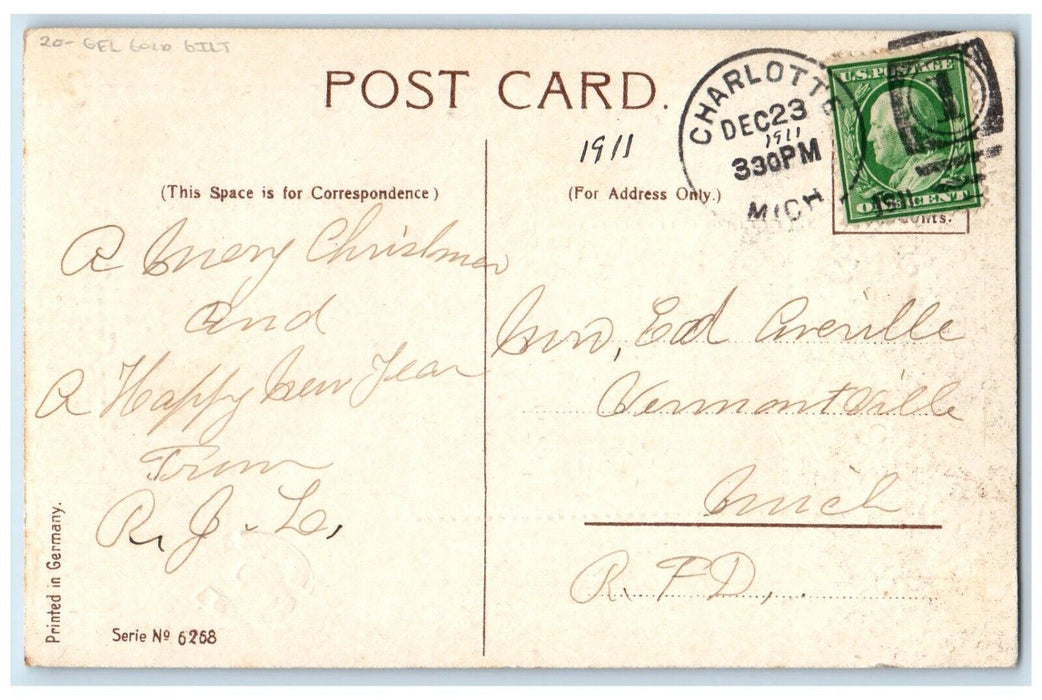 20- GEL GOLD GILT
POST CARD.
1911
CHARLOTTE
DEC 23
1911
330PM
MICH
U.S. POSTAGE
1
ONE CENT
(This Space is for Correspondence)
(For Address Only.)
A Merry Christmas
and
A Happy New Year
From
R. J. L.
Mrs, Ed Averille
Vermontville
Mich
R. F. D.
Printed in Germany.
Serie № 6268